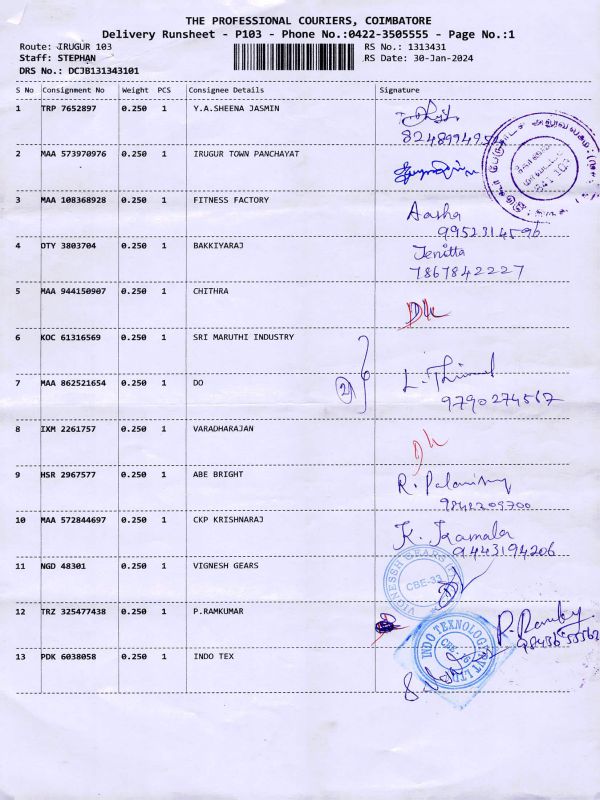 THE PROFESSIONAL COURIERS, COIMBATORE
Delivery Runsheet - P103 - Phone No.:0422-3505555 - Page No.:1
Route: IRUGUR 103 RS No.: 1313431
Staff: STEPHAN RS Date: 30-Jan-2024
DRS No.: DCJB131343101
S No Consignment No Weight PCS Consignee Details Signature
1 TRP 7652897 0.250 1 Y.A.SHEENA JASMIN
2 MAA 573970976 0.250 1 IRUGUR TOWN PANCHAYAT
3 MAA 108368928 0.250 1 FITNESS FACTORY Aasha
9952314596
4 DTY 3803704 0.250 1 BAKKIYARAJ Jenitta
7867842227
5 MAA 944150907 0.250 1 CHITHRA
6 KOC 61316569 0.250 1 SRI MARUTHI INDUSTRY
7 MAA 862521654 0.250 1 DO
9790274567
8 IXM 2261757 0.250 1 VARADHARAJAN
9 HSR 2967577 0.250 1 ABE BRIGHT
9842209700
10 MAA 572844697 0.250 1 CKP KRISHNARAJ K. Kamala
9443194206
11 NGD 48301 0.250 1 VIGNESH GEARS
VIGNESSH GEARS
CBE-33
12 TRZ 325477438 0.250 1 P.RAMKUMAR
13 PDK 6038058 0.250 1 INDO TEX